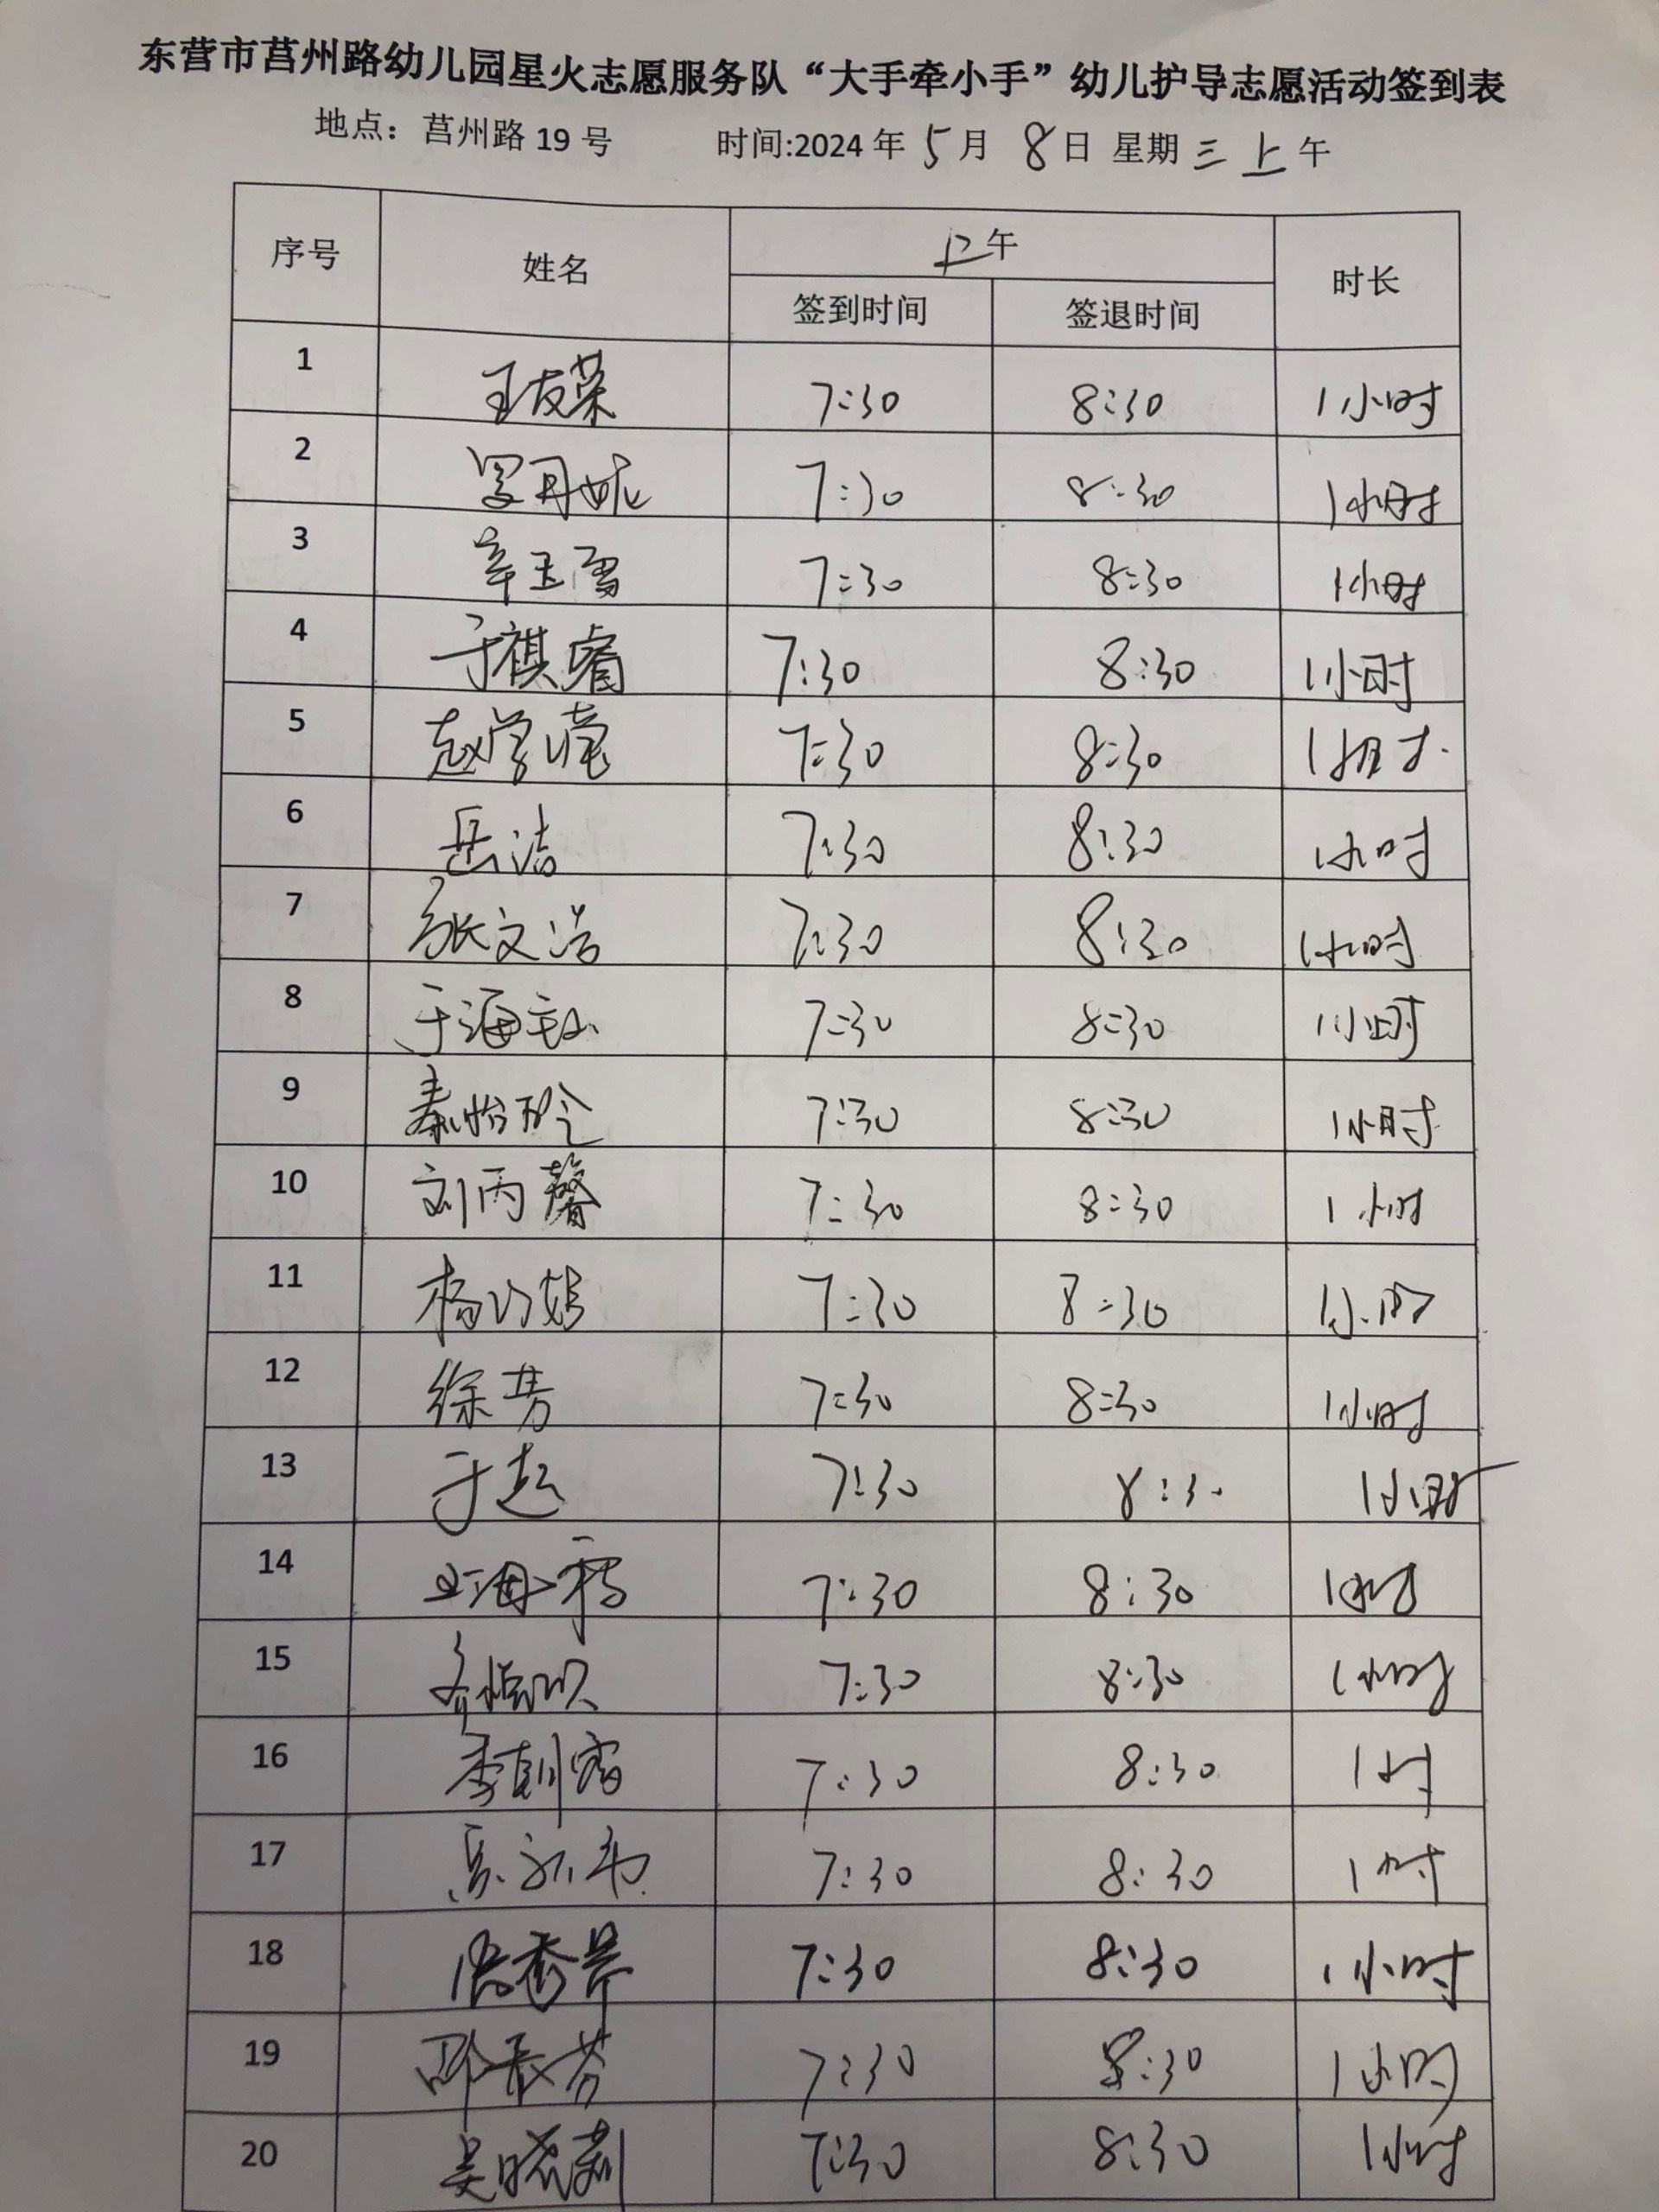 东营市莒州路幼儿园星火志愿服务队“大手牵小手”幼儿护导志愿活动签到表
地点：莒州路 19 号 时间:2024 年 5 月 8 日 星期 三 上 午
序号 姓名 上午 时长
签到时间 签退时间
1 王友荣 7:30 8:30 1小时
2 7:30 8:30 1小时
3 辛玉雪 7:30 8:30 1小时
4 于祺睿 7:30 8:30 1小时
5 赵学 7:30 8:30 1小时
6 岳洁 7:30 8:30 1小时
7 张文浩 7:30 8:30 1小时
8 于海 7:30 8:30 1小时
9 秦怡玲 7:30 8:30 1小时
10 刘丙馨 7:30 8:30 1小时
11 杨 7:30 8:30 1小时
12 徐芳 7:30 8:30 1小时
13 于起 7:30 8:30 1小时
14 7:30 8:30 1小时
15 7:30 8:30 1小时
16 李朝霞 7:30 8:30 1时
17 7:30 8:30 1时
18 张秀芹 7:30 8:30 1小时
19 邵 芬 7:30 8:30 1小时
20 吴晓莉 7:30 8:30 1小时